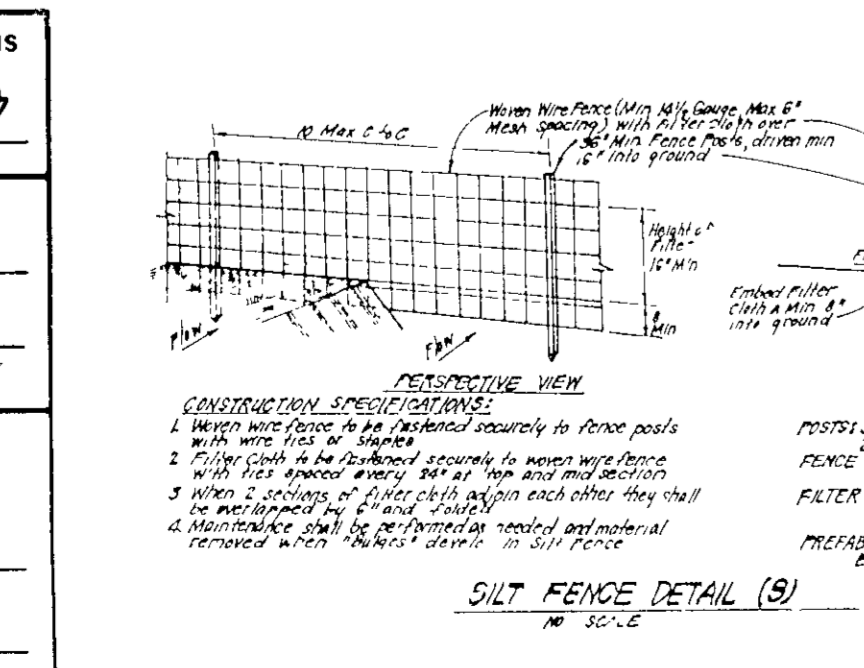 Woven Wire Fence (Min 14½ Gauge, Max 6"
Mesh Spacing) with Filter Cloth over
10 Max C to C
36" Min Fence Posts, driven min
16" into ground
Height of
Filter
16" Min
Embed Filter
Cloth A Min 8"
into ground
8
Min
Flow
Flow
PERSPECTIVE VIEW
CONSTRUCTION SPECIFICATIONS:
1. Woven wire fence to be fastened securely to fence posts
with wire ties or staples
2 Filter Cloth to be fastened securely to woven wire fence
with ties spaced every 24" at top and mid section
3 When 2 sections of filter cloth adjoin each other they shall
be overlapped by 6" and folded
4. Maintenance shall be performed as needed and material
removed when "Bulges" develop in Silt Fence
POSTS:
FENCE
FILTER
PREFAB
SILT FENCE DETAIL (S)
NO SCALE